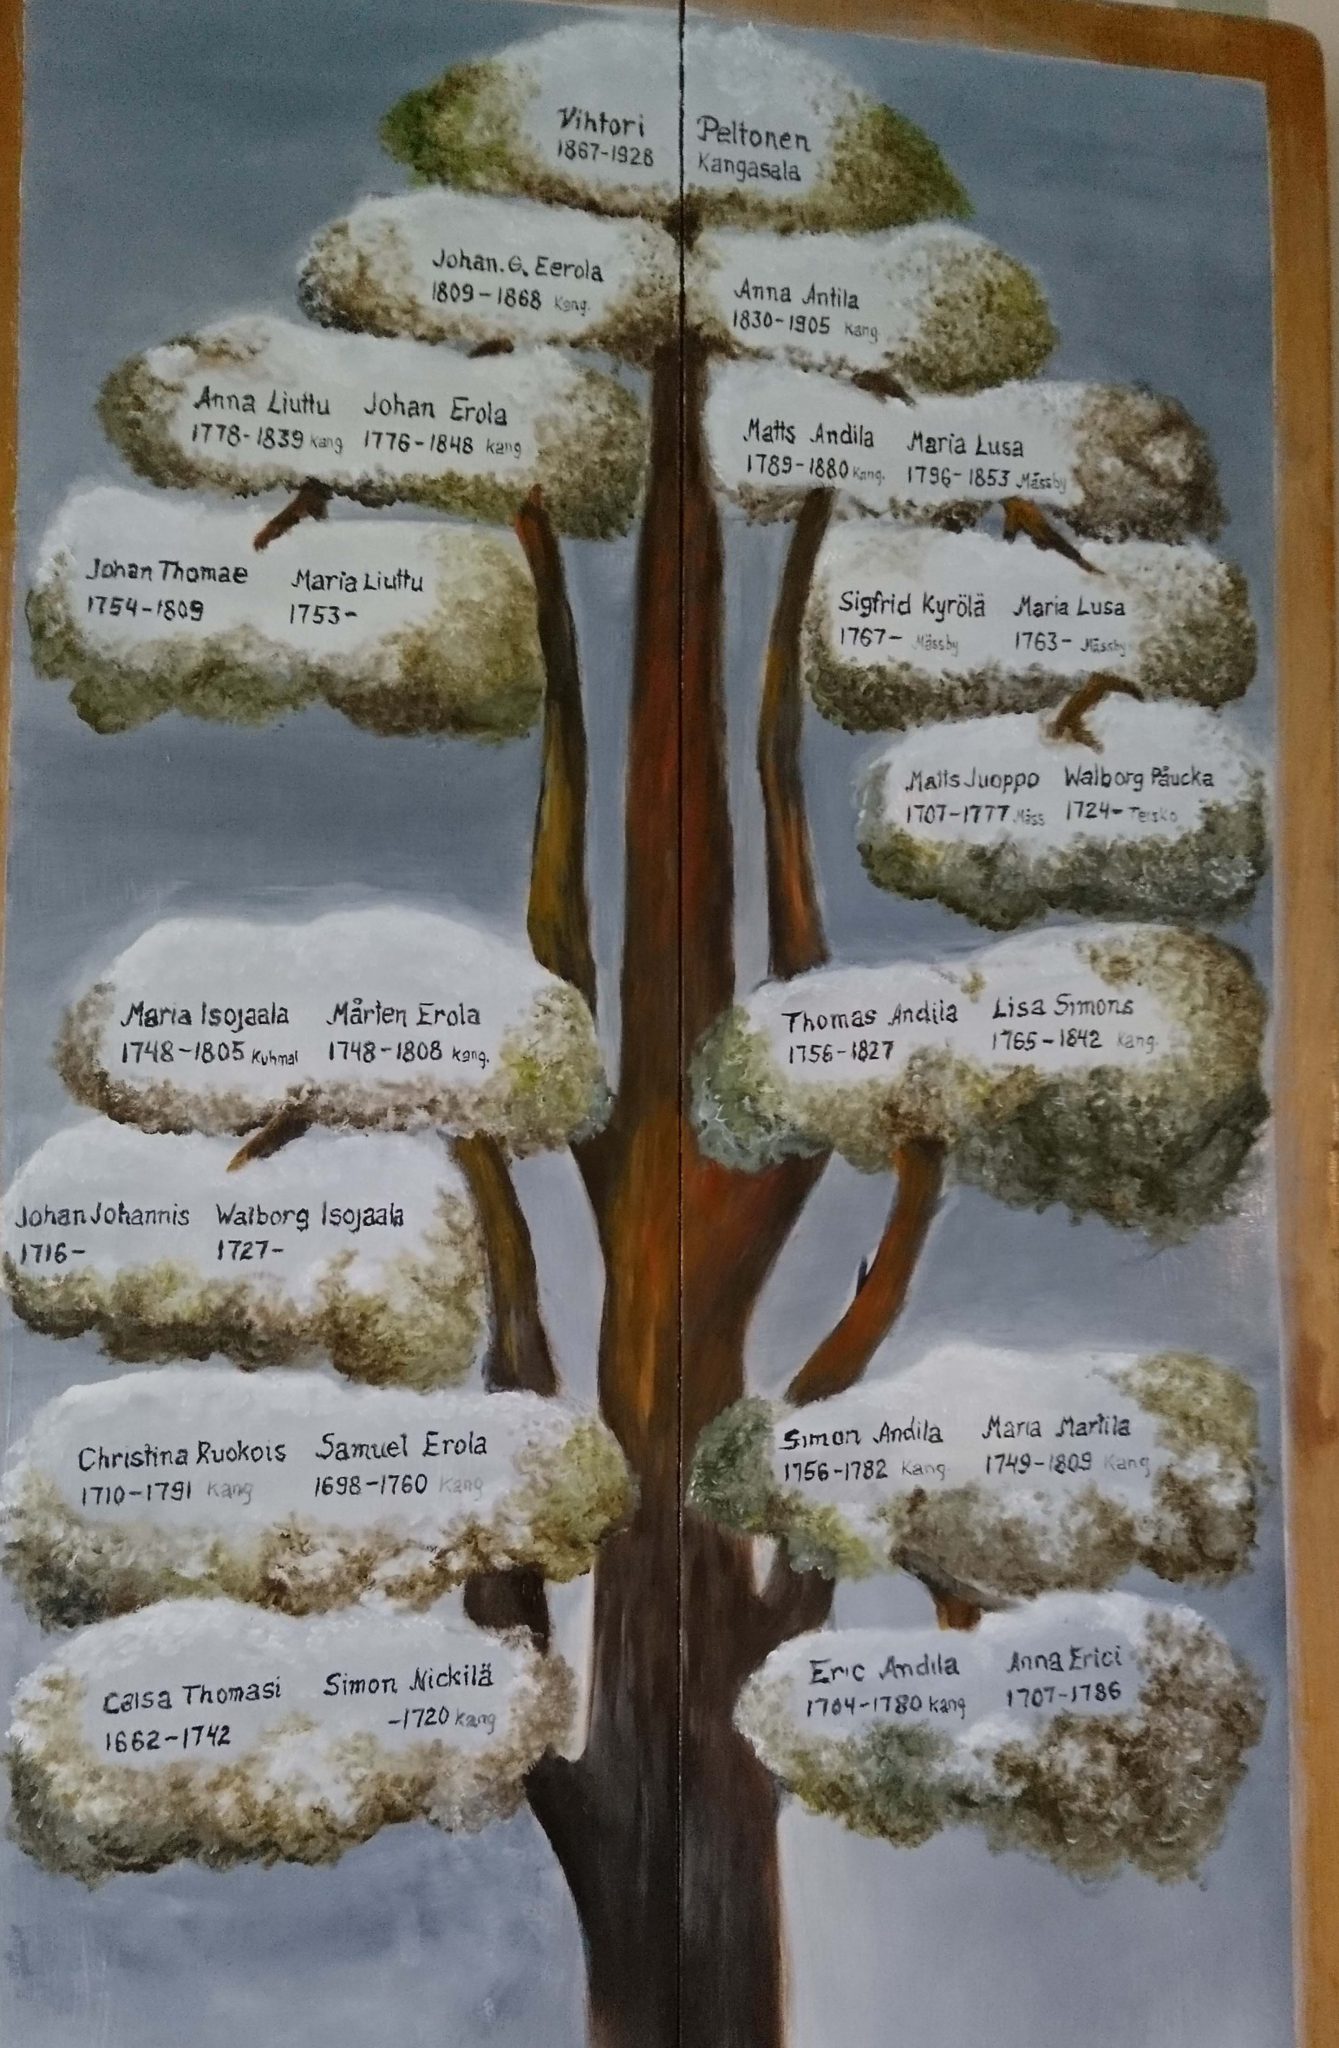 Vihtori Peltonen
1867-1928 Kangasala
Johan. G. Eerola
1809-1868 Kang.
Anna Antila
1830-1905 Kang
Anna Liuttu Johan Erola
1778-1839 Kang 1776-1848 Kang
Matts Andila Maria Lusa
1789-1880 Kang. 1796-1853 Mässby
Johan Thomae Maria Liuttu
1754-1809 1753-
Sigfrid Kyrölä Maria Lusa
1767- Mässby 1763- Mässby
Matts Juoppo Walborg Påucka
1707-1777 Mäss 1724- Teisko
Maria Isojaala Mårten Erola
1748-1805 Kuhmal 1748-1808 Kang.
Thomas Andila Lisa Simons
1756-1827 1765-1842 Kang.
Johan Johannis Walborg Isojaala
1716- 1727-
Christina Ruokois Samuel Erola
1710-1791 Kang 1698-1760 Kang
Simon Andila Maria Martila
1756-1782 Kang 1749-1809 Kang
Caisa Thomasi Simon Nickilä
1662-1742 -1720 Kang
Eric Andila Anna Erici
1704-1780 Kang 1707-1786